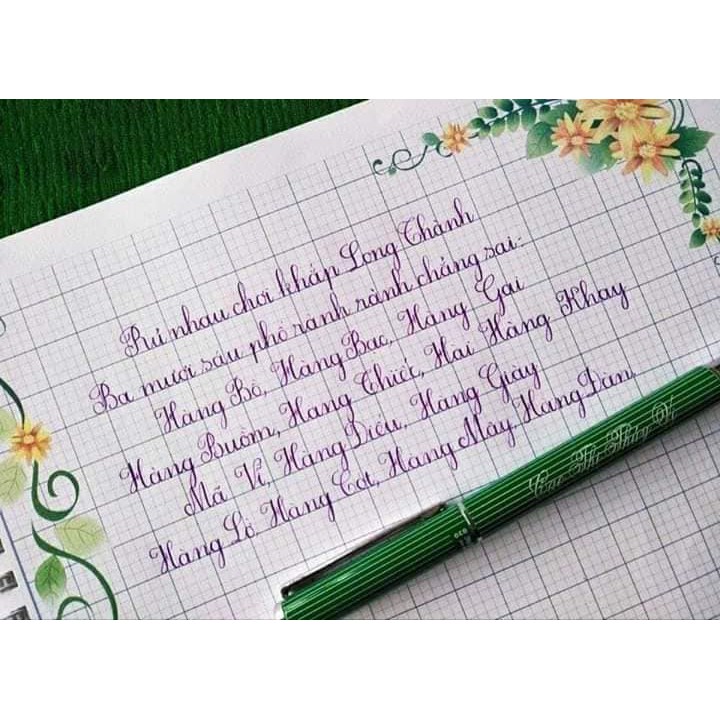 Rủ nhau chơi khắp Long Thành
Ba mươi sáu phố rành rành chẳng sai:
Hàng Bồ, Hàng Bạc, Hàng Gai
Hàng Buồm, Hàng Thiếc, Hài Hàng Khay
Mã Vĩ, Hàng Điếu, Hàng Giày
Hàng Lờ, Hàng Cót, Hàng Mây, Hàng Đàn,